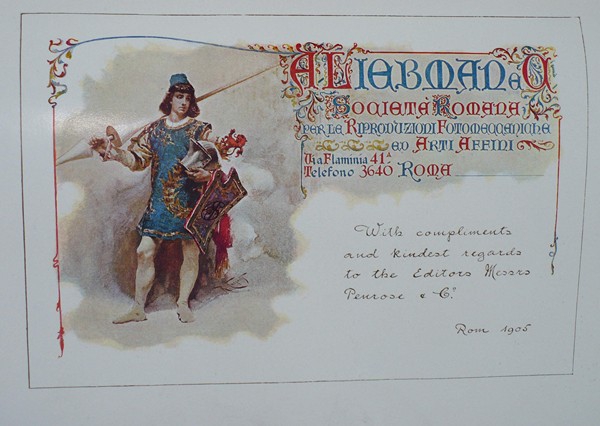 A LIEBMAN e C
SOCIETÀ ROMANA
PER LE RIPRODUZIONI FOTOMECCANICHE
ED ARTI AFFINI
Via Flaminia 41A
Telefono 3640 ROMA
With compliments
and kindest regards
to the Editors Messrs
Penrose & Co.
Rom 1905